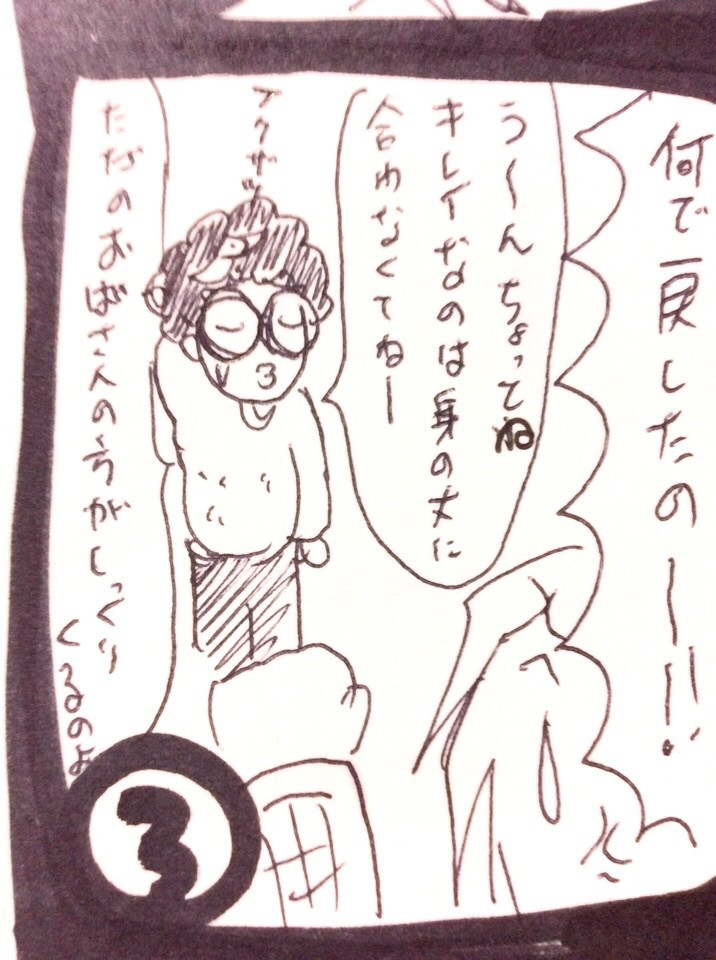 何で戻したの〜!!
う〜んちょってね
キレイなのは身の丈に
合わなくてねー
ただのおばさんの方がしっくり
くるのよ
3